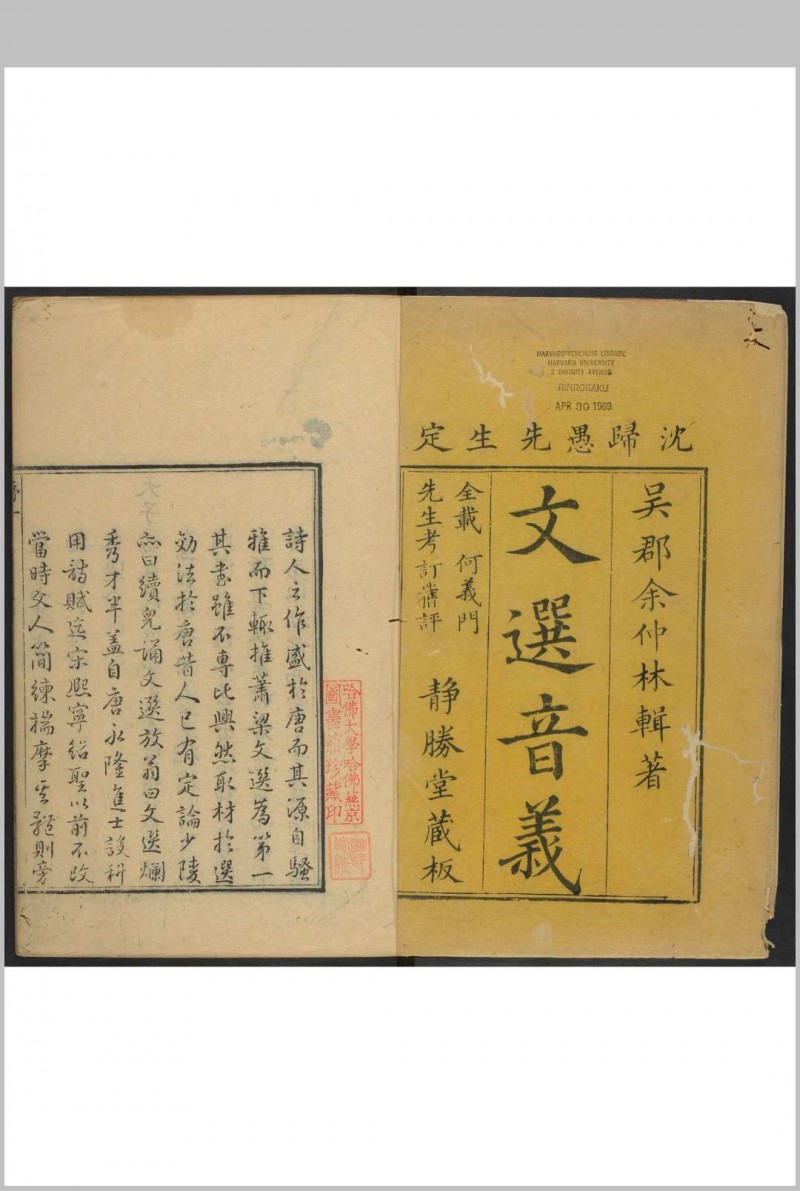 HARVARD-YENCHING LIBRARY
HARVARD UNIVERSITY
2 DIVINITY AVENUE
RINROKAKU
APR 30 1969
沈歸愚先生定
吴郡余仲林輯著
文選音義
全載何義門
先生考訂舊評
靜勝堂蔵板
詩人之作盛於唐而其源自騷
雅而下輙推蕭梁文選為第一
其書雖不專比興然取材於選
効法於唐昔人已有定論少陵
亦曰續兒誦文選放翁曰文選爛
秀才半盖自唐永隆進士設科
用詩賦迄宋熙寧紹聖以前不改
當時文人簡練揣摩其體則旁
哈佛大學哈佛燕京
圖書館珍藏印